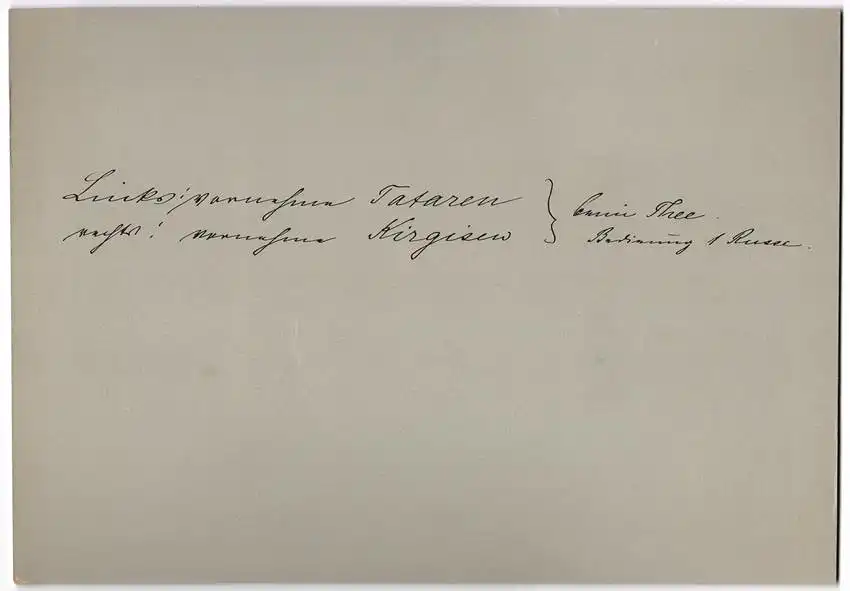 Links: vornehme Tataren
rechts: vornehme Kirgisen
} beim Thee.
Bedienung 1 Russe.